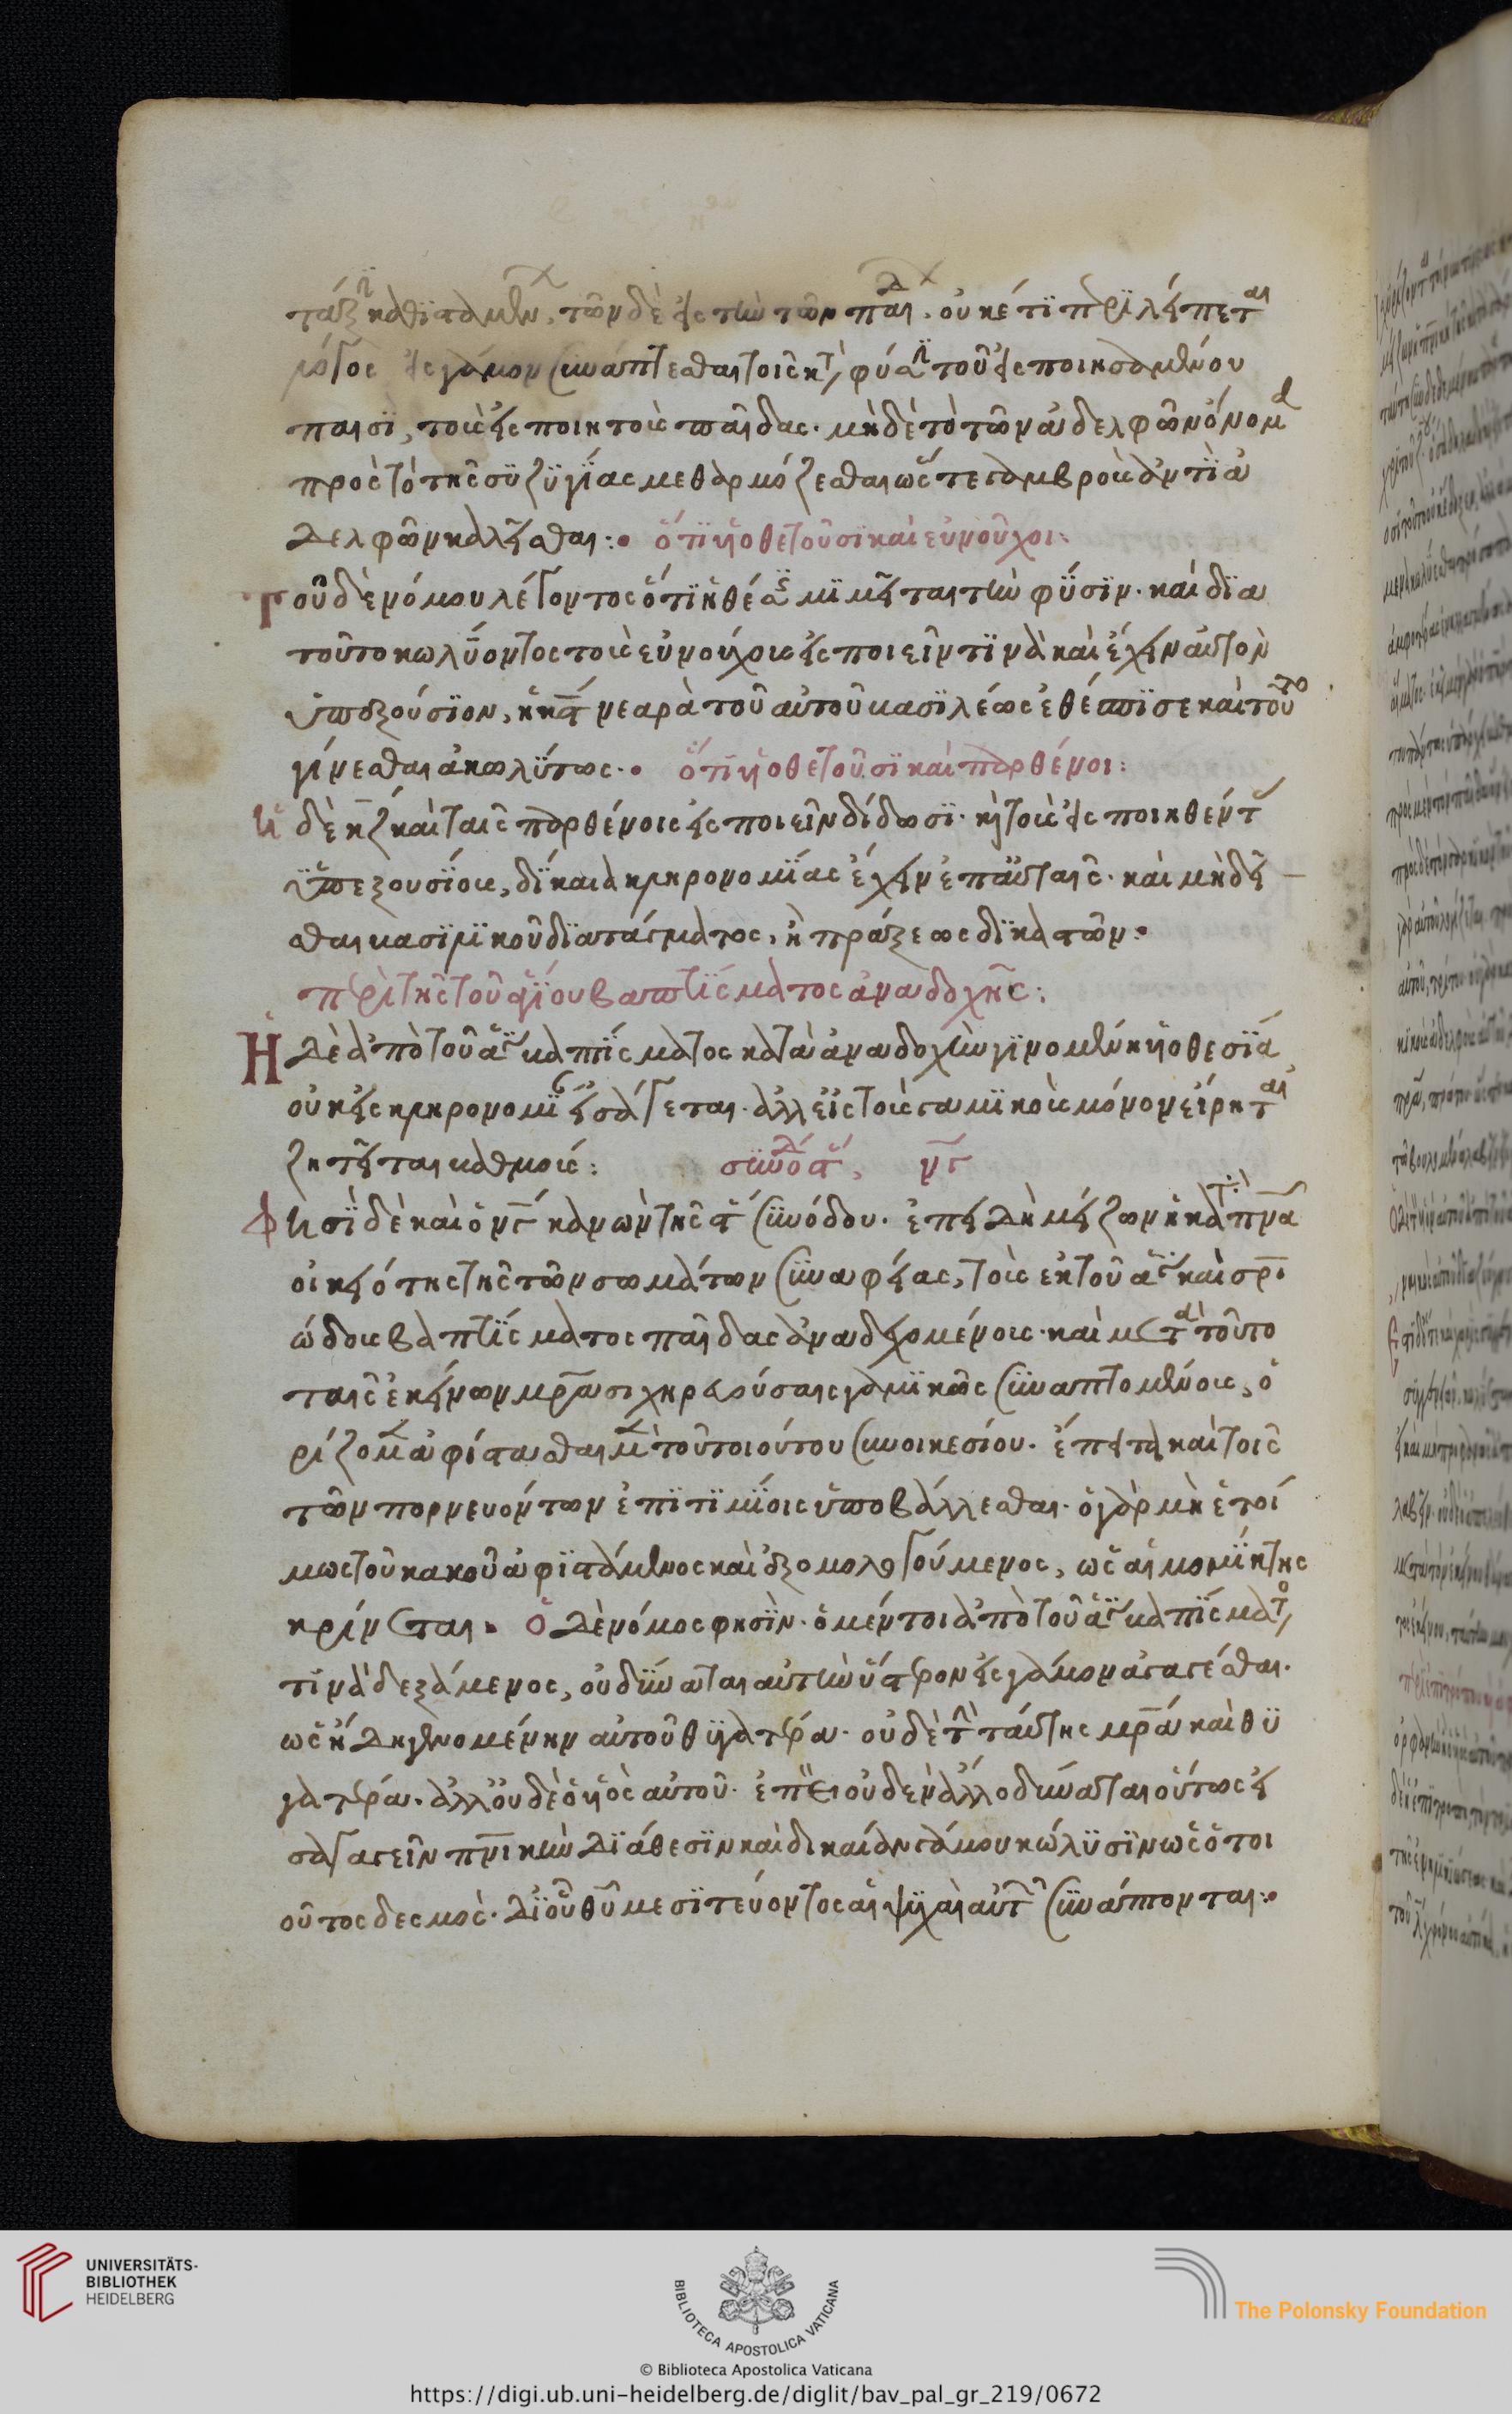 τάξιν καθισταμένων, τῶν δὲ εἰς τὴν τῶν παίδων. οὐκέτι περιλείπεται
λόγος εἰς γάμον συνάπτεσθαι τοῖς κατὰ φύσιν τοῦ εἰσποιησαμένου
παισὶ, τοὺς εἰσποιητοὺς παῖδας. μηδὲ τὸ τῶν ἀδελφῶν ὄνομα
πρὸς τὸ τῆς συζυγίας μεθαρμόζεσθαι ὥστε γαμβροὺς ἀντὶ ἀ
δελφῶν καλεῖσθαι :• ὅτι υἱοθετοῦσι καὶ εὐνοῦχοι :
Τοῦ δὲ νόμου λέγοντος ὅτι ἡ θέσις μιμεῖται τὴν φύσιν. καὶ δια
τοῦτο κωλύοντος τοὺς εὐνούχους εἰσποιεῖν τινὰ καὶ ἔχειν αὐτὸν
ὑπεξούσιον, ἡ κϛ νεαρὰ τοῦ αὐτοῦ βασιλέως ἐθέσπισε καὶ τοῦτο
γίνεσθαι ἀκωλύτως .• ὅτι υἱοθετοῦσι καὶ παρθένοι :
Ἡ δὲ κζ καὶ ταῖς παρθένοις εἰσποιεῖν δίδωσι. κỳ τοὺς εἰσποιηθέντας
ὑπεξουσίους, δίκαια κληρονομίας ἔχειν ἐπ' αὐταῖς. καὶ μὴ δεῖ
σθαι βασιλικοῦ διατάγματος, ἢ πράξεως δικαστῶν :
περὶ τῆς τοῦ ἁγίου βαπτίσματος ἀναδοχῆς :
Ἡ δὲ ἀπὸ τοῦ ἁγίου βαπτίσματος κατὰ ἀναδοχὴν γινομένη υἱοθεσία
οὐκ εἰς κληρονομίαν εἰσάγεται. ἀλλ' εἰς τοὺς γαμικοὺς μόνον εἴρηται
ζητεῖται βαθμούς : συνόδου ϛ, νγ
Φησὶ δὲ καὶ ὁ νγ κανὼν τῆς ϛ συνόδου. ἐπεὶ δὴ μείζων ἡ κατὰ πνεῦμα
οἰκειότης τῆς τῶν σωμάτων συναφείας, τοὺς ἐκ τοῦ ἁγίου καὶ σωτηρι
ώδους βαπτίσματος παῖδας ἀναδεχομένους. καὶ μετὰ τοῦτο
ταῖς ἐκείνων μητράσι χηρευούσαις γαμικῶς συναπτομένους, ὁ
ρίζομεν ἀφίστασθαι μὲν τοῦ τοιούτου συνοικεσίου. ἔπειτα καὶ τοῖς
τῶν πορνευόντων ἐπιτιμίοις ὑποβάλλεσθαι. ὁ γὰρ μὴ ἑτοί
μως τοῦ κακοῦ ἀφιστάμενος καὶ ἐξομολογούμενος, ὡς αἱμομίκτης
κρίνεται. Ὁ δὲ νόμος φησὶν. ὁ μέντοι ἀπὸ τοῦ ἁγίου βαπτίσματος
τινὰ δεξάμενος, οὐ δύναται αὐτὴν ὕστερον εἰς γάμον ἀγαγέσθαι.
ὡς ἤδη γενομένην αὐτοῦ θυγατέρα. οὐδὲ τὴν ταύτης μητέρα καὶ θυ
γατέρα. ἀλλ' οὐδὲ ὁ υἱὸς αὐτοῦ. ἐπεὶ οὐδὲν ἄλλο δύναται οὕτως εἰ
σαγαγεῖν πατρικὴν διάθεσιν καὶ δικαίαν γάμου κώλυσιν ὡς ὁ τοι
οῦτος δεσμός. δι' οὗ θεοῦ μεσιτεύοντος αἱ ψυχαὶ αὐτῶν συνάπτονται :•
UNIVERSITÄTS-
BIBLIOTHEK
HEIDELBERG
BIBLIOTECA APOSTOLICA VATICANA
The Polonsky Foundation
© Biblioteca Apostolica Vaticana
https://digi.ub.uni-heidelberg.de/diglit/bav_pal_gr_219/0672